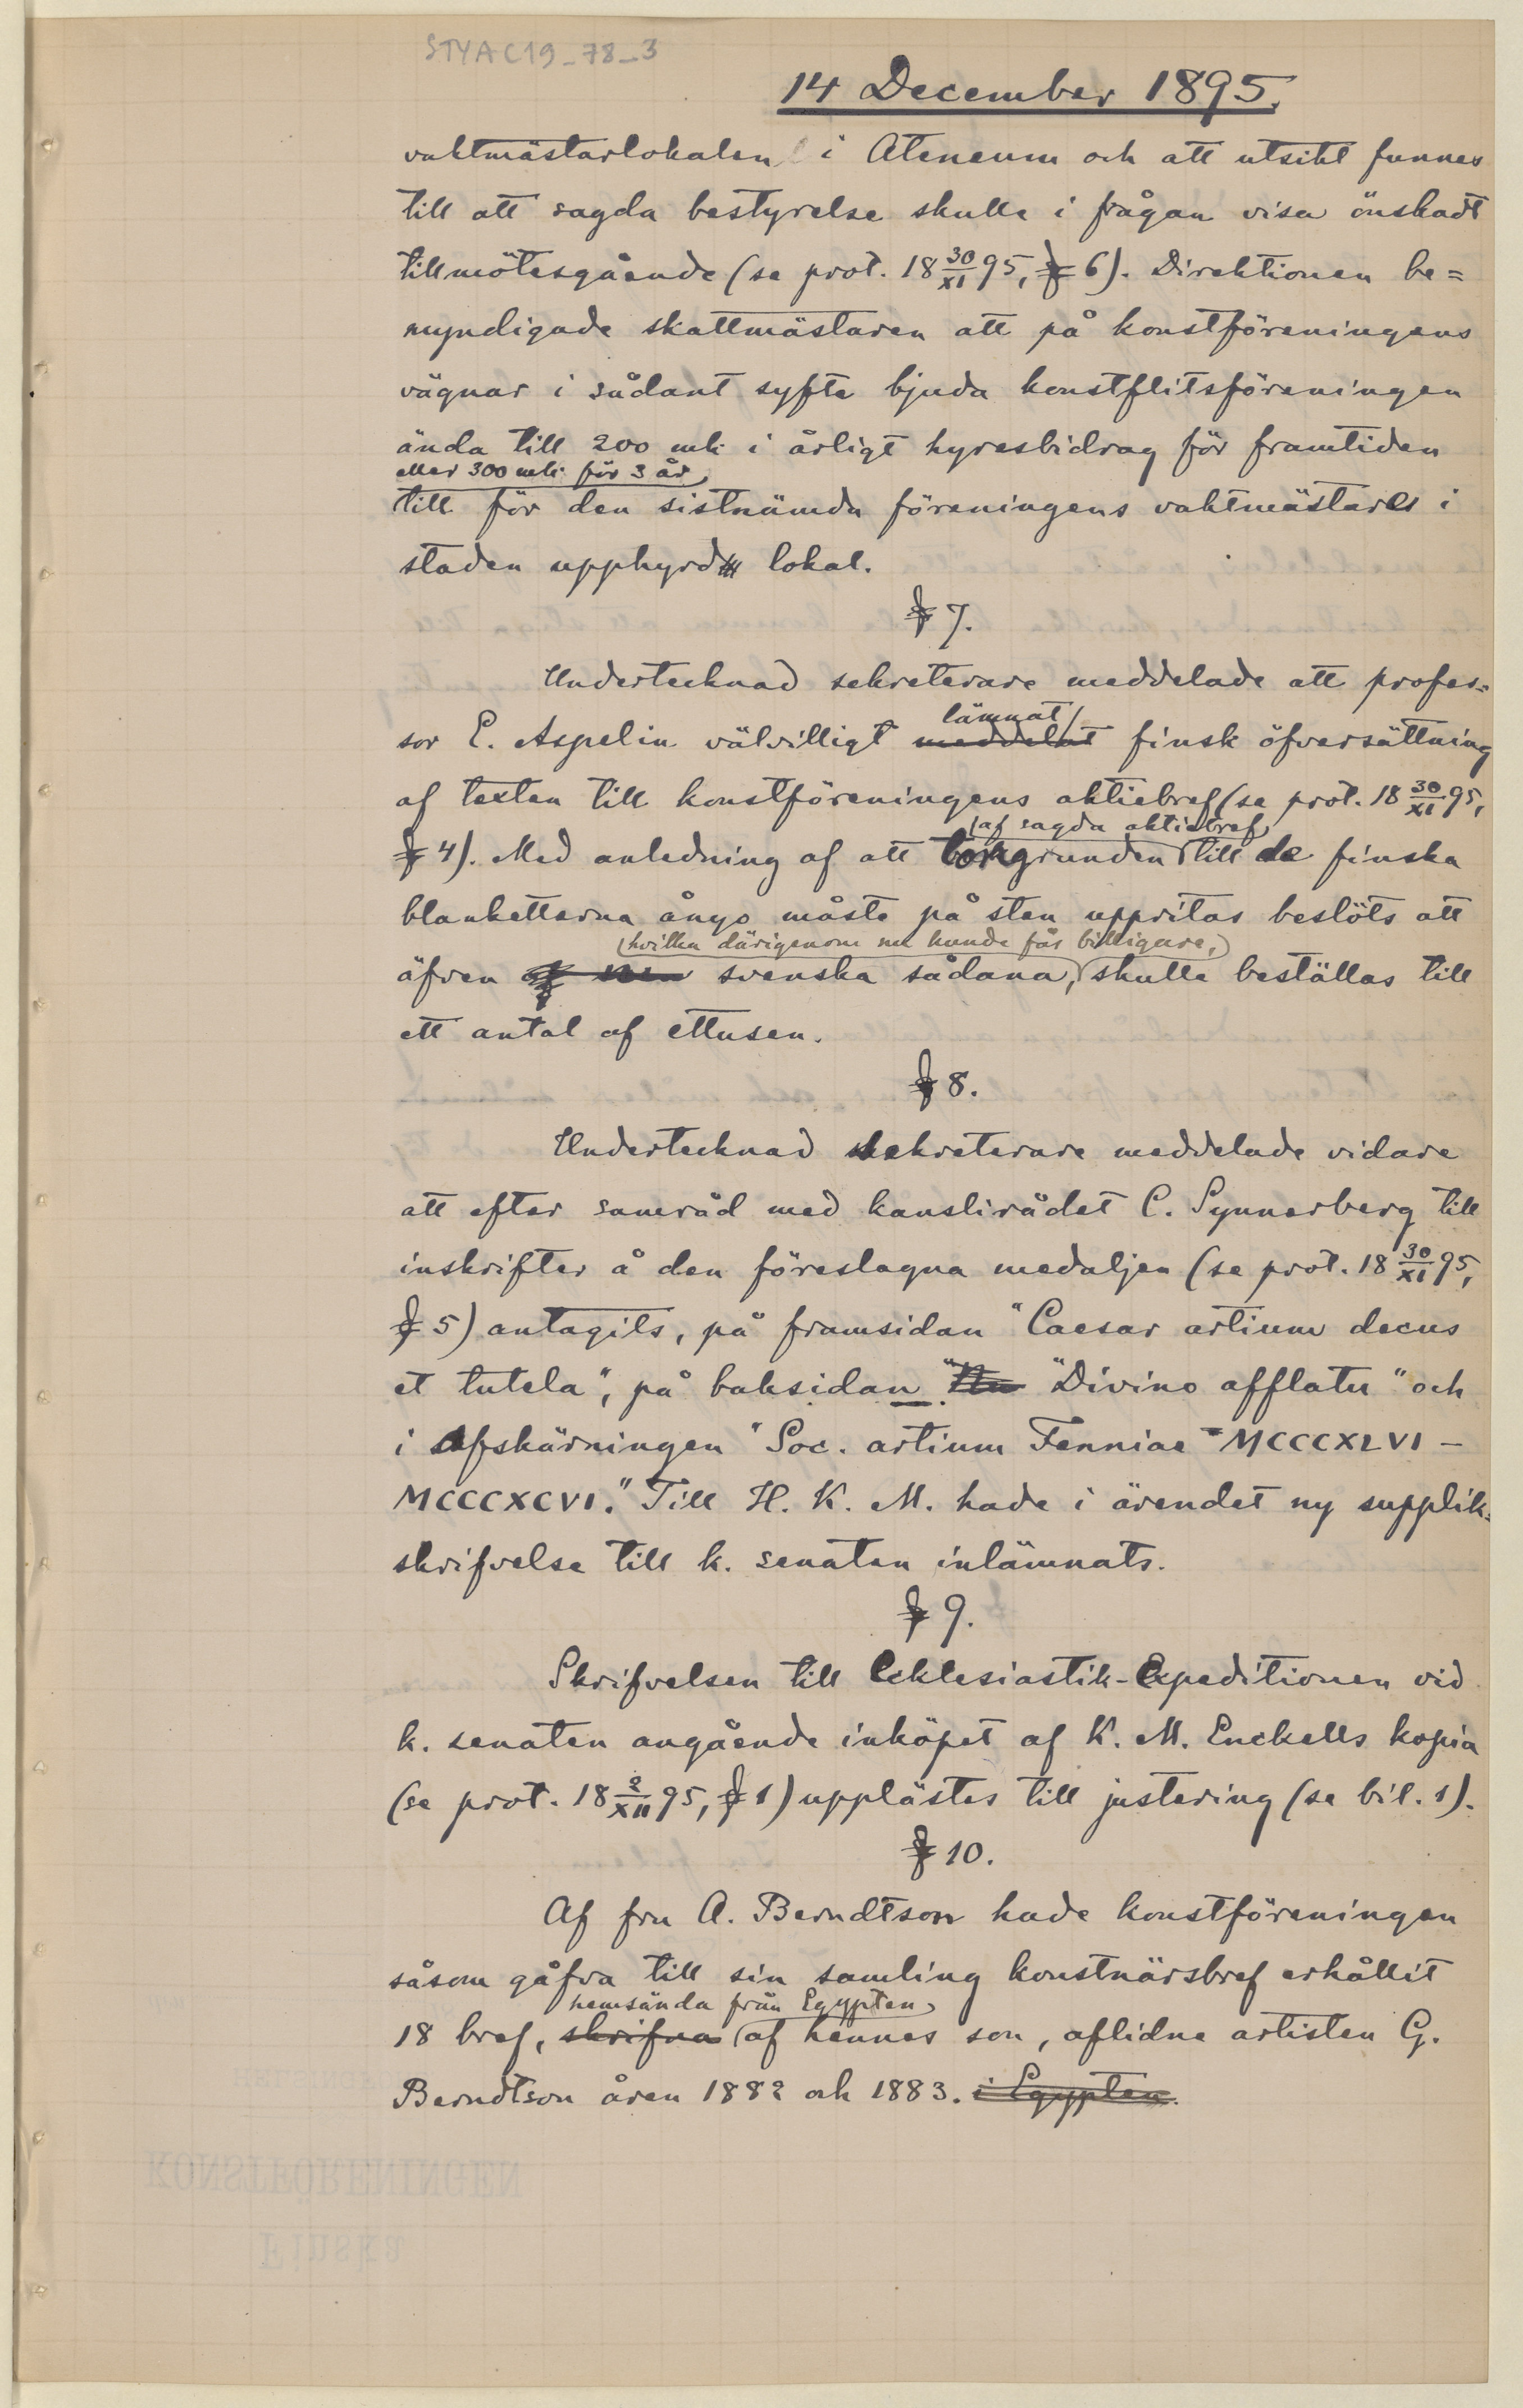 STYAC19_78_3
14 December 1895.
vaktmästarlokalen i Ateneum och att utsikt funnes
till att sagda bestyrelse skulle i frågan visa önskadt
tillmötesgående (se prot. 18 30/XI 95, § 6). Direktionen be=
myndigade skattmästaren att på konstföreningens
vägnar i sådant syfte bjuda konstflitsföreningen
ända till 200 mk i årligt hyresbidrag för framtiden
eller 300 mk för 3 år
till för den sistnämda föreningens vaktmästares i
staden upphyrd lokal.
§ 7.
Undertecknad sekreterare meddelade att profes=
lämnat
sor E. Aspelin välvilligt meddelat finsk öfversättning
af texten till konstföreningens aktiebref (se prot. 18 30/XI 95,
af sagda aktiebref
§ 4). Med anledning af att tongrunden till de finska
blanketterna ånyo måste på sten uppritas beslöts att
hvilka därigenom nu kunde fås billigare,
äfven svenska sådana, skulle beställas till
ett antal af ettusen.
§ 8.
Undertecknad sekreterare meddelade vidare
att efter samråd med kanslirådet C. Synnerberg till
inskrifter å den föreslagna medaljen (se prot. 18 30/XI 95,
§ 5) antagits, på framsidan "Caesar artium decus
et tutela", på baksidan "Divino afflatu" och
i afskärningen "Soc. artium Fenniae MCCCXLVI –
MCCCXCVI." Till H. K. M. hade i ärendet ny supplik=
skrifvelse till k. senaten inlämnats.
§ 9.
Skrifvelsen till Ecklesiastik-Expeditionen vid
k. senaten angående inköpet af K. M. Enckells kopia
(se prot. 18 2/XII 95, § 1) upplästes till justering (se bil. 1).
§ 10.
Af fru A. Berndtson hade konstföreningen
såsom gåfva till sin samling konstnärsbref erhållit
hemsända från Egypten
18 bref, skrifna af hennes son, aflidne artisten G.
Berndtson åren 1882 och 1883. i Egypten.
KONSTFÖRENINGEN
Finska